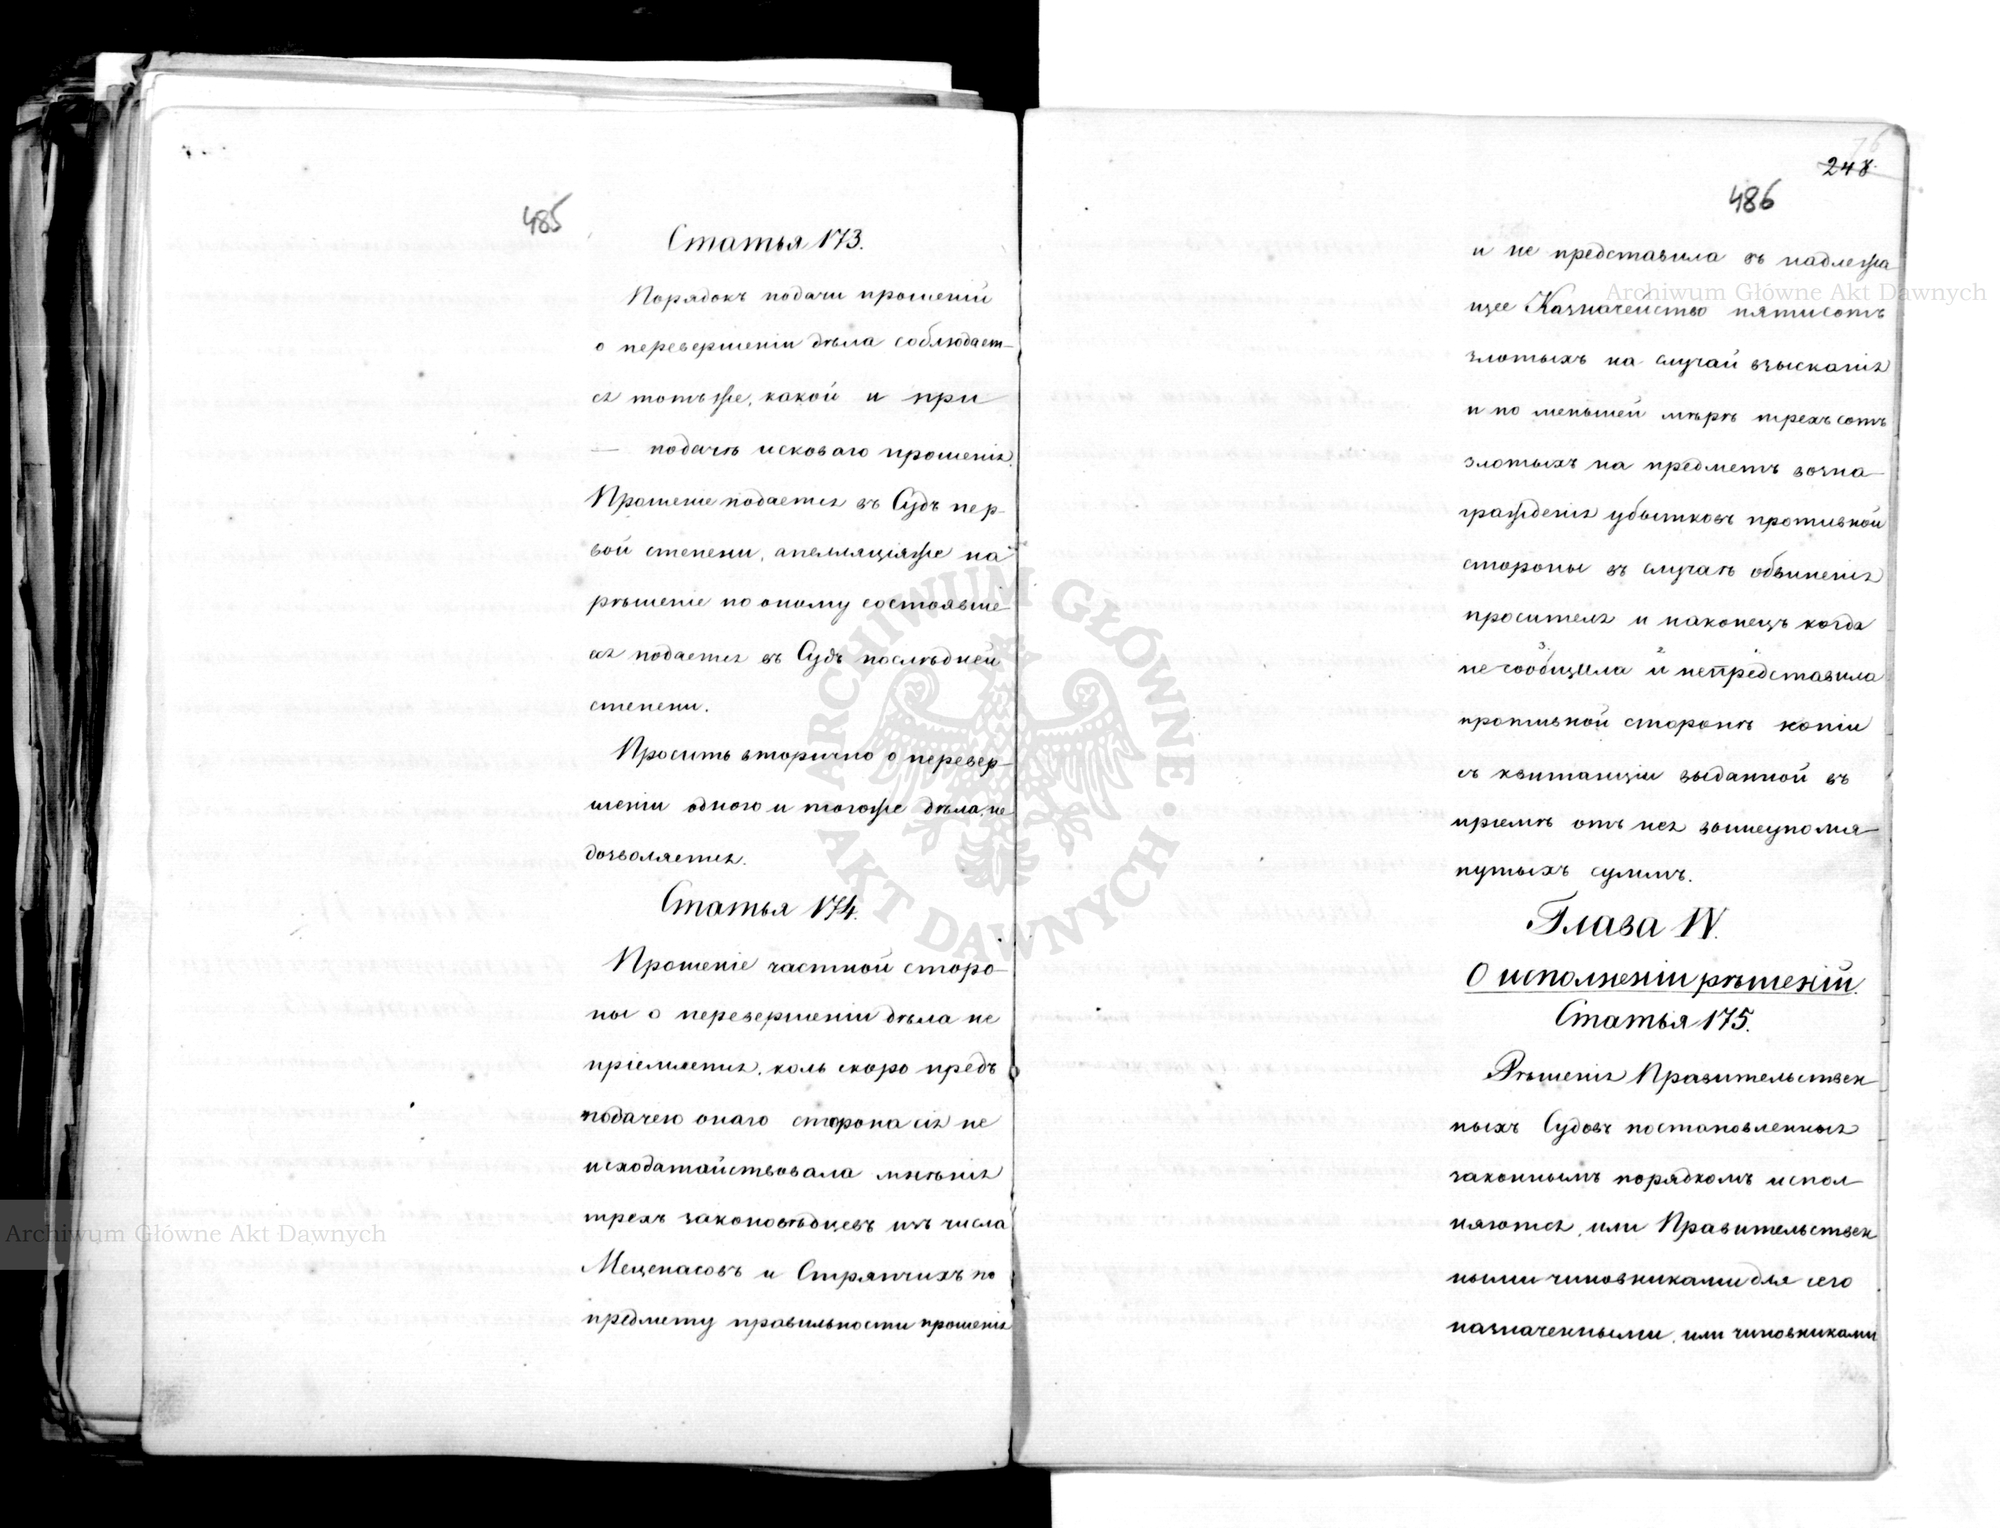 485
Статья 173.
Порядокъ подачи прошеній
о перевершеніи дѣла соблюдает-
ся тотъ же, какой и при
— подачѣ исковаго прошенія.
Прошеніе подается въ Судъ пер-
вой степени, апелляція же на
рѣшеніе по оному состоявше-
ся подается въ Судъ послѣдней
степени.
Просить вторично о перевер-
шеніи одного и того же дѣла, не
дозволяется.
Статья 174.
Прошеніе частной сторо-
ны о перевершеніи дѣла не
пріемлется, коль скоро предъ
подачею онаго сторона сія не
исходатайствовала мнѣнія
трехъ законовѣдцевъ изъ числа
Меценасовъ и Стряпчихъ по
предмету правильности прошенія
76
248.
486
и не представила въ надлежа-
щее Казначейство пятисотъ
злотыхъ на случай взысканія
и по меньшей мѣрѣ трехъ сотъ
злотыхъ на предметъ возна-
гражденія убытковъ противной
стороны въ случаѣ обвиненія
просителя и наконецъ когда
не сообщила и не представила
противной сторонѣ копіи
съ квитанціи выданной въ
пріемѣ отъ нея вышеупомя-
нутыхъ суммъ.
Глава IV.
О исполненіи рѣшеній.
Статья 175.
Рѣшенія Правительствен-
ныхъ Судовъ постановленныя
законнымъ порядкомъ испол-
няются, или Правительствен-
ными чиновниками для сего
назначенными, или чиновниками
Archiwum Główne Akt Dawnych
Archiwum Główne Akt Dawnych
ARCHIWUM GŁÓWNE AKT DAWNYCH